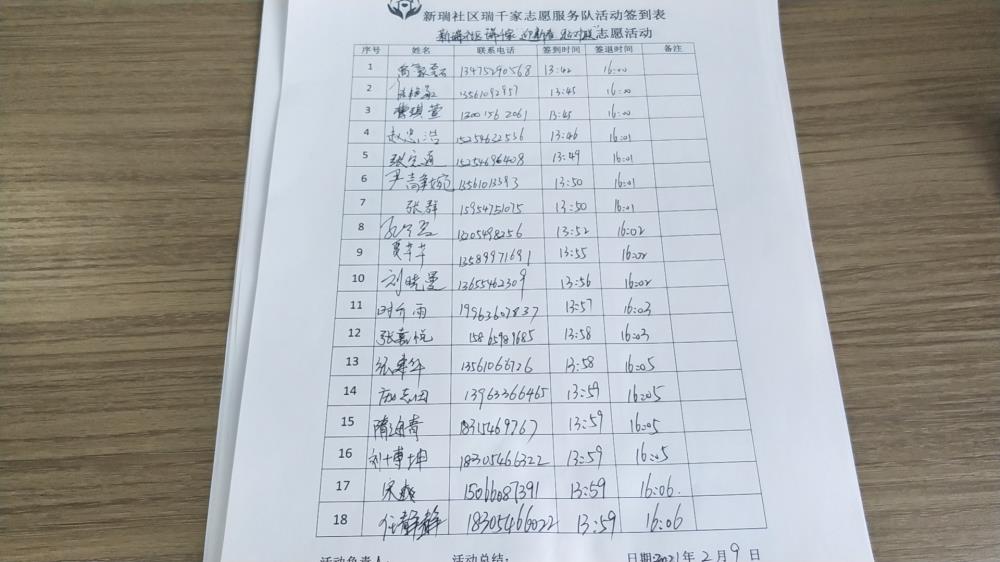 新瑞社区瑞千家志愿服务队活动签到表
新瑞社区瑞千家 迎新春 志愿活动
序号 姓名 联系电话 签到时间 签退时间 备注
1 13475290568 13:42 16:00
2 13561092957 13:45 16:00
3 曹琪萱 13001562061 13:45 16:00
4 赵忠浩 15254622536 13:46 16:01
5 张宝通 15254696408 13:49 16:01
6 13:50 16:01
7 张群 15954751075 13:50 16:01
8 13:52 16:02
9 夏芊芊 13589971691 13:55 16:02
10 刘晓曼 13655462309 13:56 16:02
11 时雨 19963607837 13:57 16:03
12 张嘉悦 15865989685 13:58 16:03
13 张 13561066726 13:58 16:05
14 志田 13963366465 13:59 16:05
15 隋 18315469767 13:59 16:05
16 刘博坤 18305466322 13:59 16:05
17 宋 15066087391 13:59 16:06.
18 任静静 18305466022 13:59 16:06
活动负责人: 活动总结: 日期:2021年2月9日